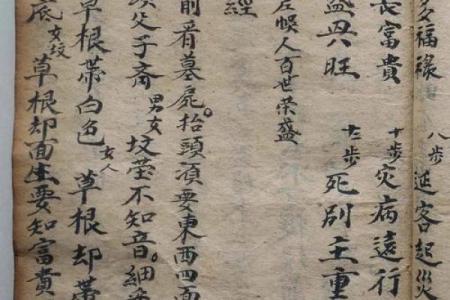 多福祿 八步 迎客起災
長富貴 十步 災病遠行
益兴旺 十二步 死別王重
左恨人百世荣盛
經
前看墓屍抬頭須要東西四面
父子斎男女坟莹不知音細
草根带白色女人草根却带
底女坟草根却面生要知富貴